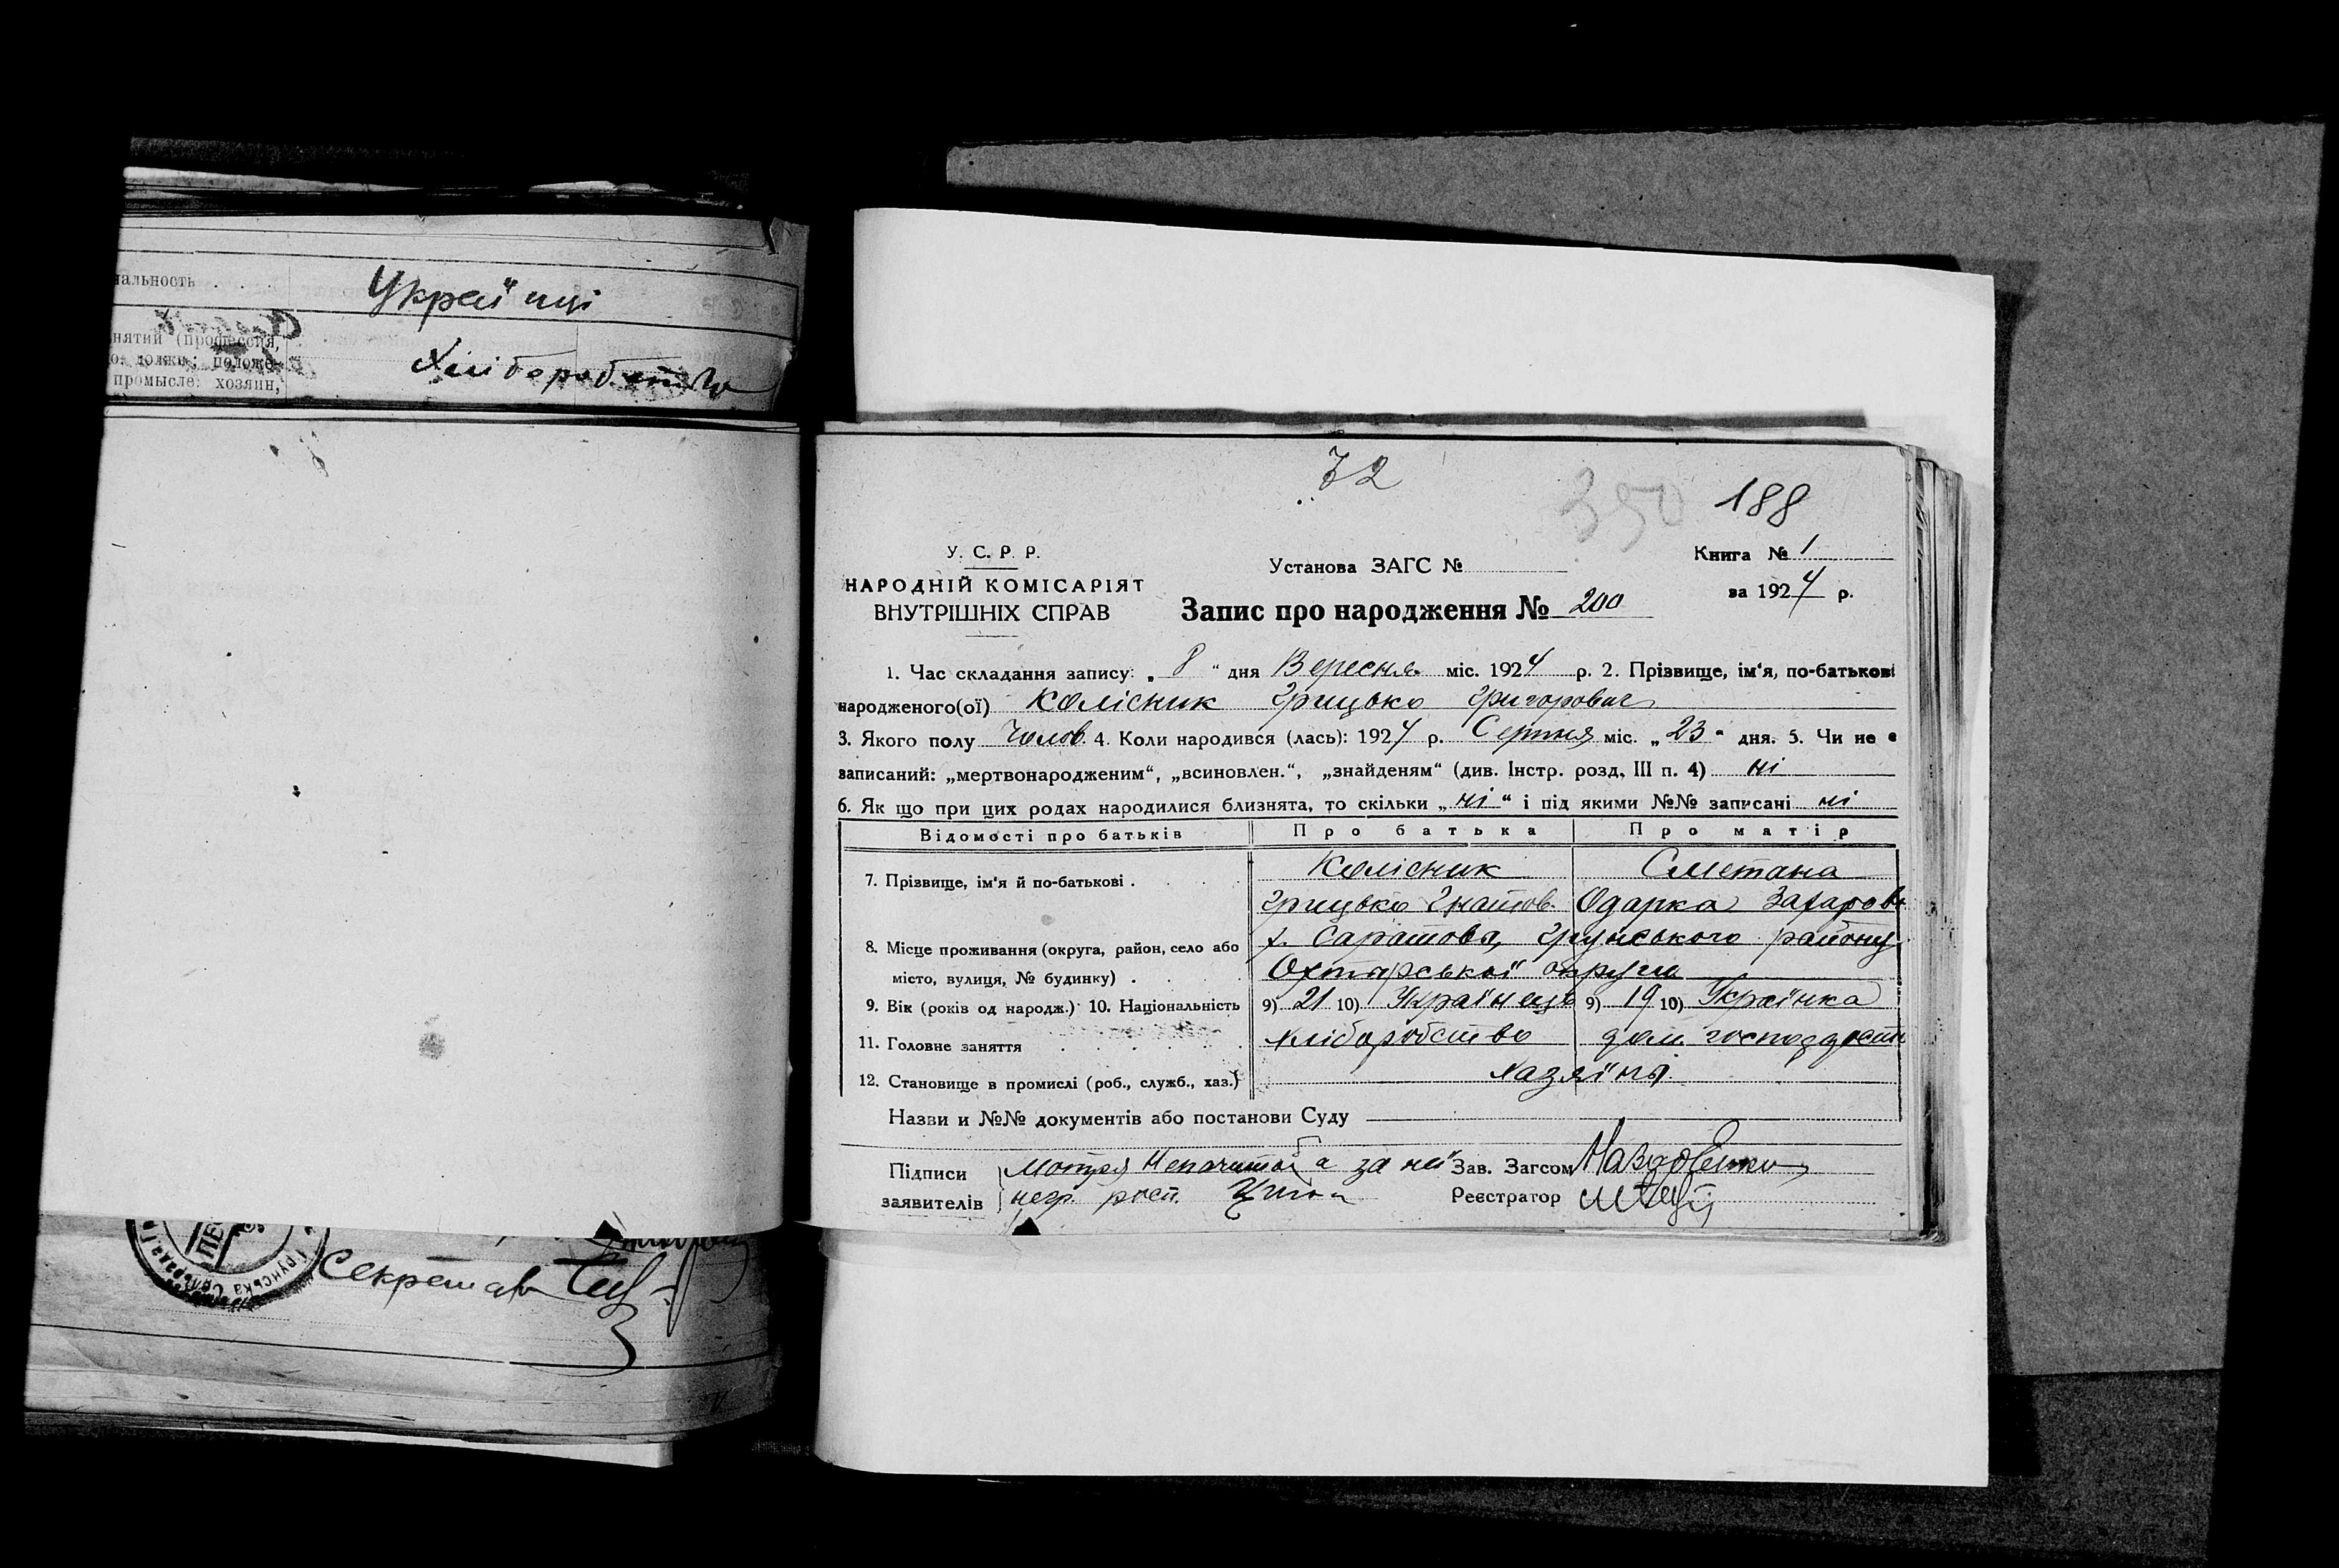 нальность . . .
Україпці
нятий (профессия,
о. должн.; положе-
промысле: хозяин,
Хліборобство
Грунська Сільрада
Секретар
72
350
188
У. С. Р. Р.
НАРОДНІЙ КОМІСАРІЯТ
ВНУТРІШНІХ СПРАВ
Установа ЗАГС №
Запис про народження № 200
Книга № 1
за 1924 р.
1. Час складання запису: „ 8 “ дня Вересня міс. 1924 р. 2. Прізвище, ім'я, по-батькові
народженого(ої) Колісник Грицько Григорович
3. Якого полу Чолов. 4. Коли народився (лась): 1924 р. Серпня міс. „ 23 “ дня. 5. Чи не є
записаний: „мертвонародженим“, „всиновлен.“, „знайденям“ (див. Інстр. розд. III п. 4) ні
6. Як що при цих родах народилися близнята, то скільки „ ні “ і під якими №№ записані ні
Відомості про батьків Про батька Про матір
7. Прізвище, ім'я й по-батькові . Колісник Сметана
Грицько Гнатов. Одарка Захаров
8. Місце проживання (округа, район, село або х. Саратова, Грунського району
місто, вулиця, № будинку) . Охтирської округи
9. Вік (років од народж.) 10. Національність 9) 21 10) Українець 9) 19 10) Українка
11. Головне заняття хліборобство дом. господарст
12. Становище в промислі (роб., служб., хаз.) Хазяїни
Назви и №№ документів або постанови Суду
Підписи Мотря а за неї Зав. Загсом
заявителів негр. росп. Реєстратор